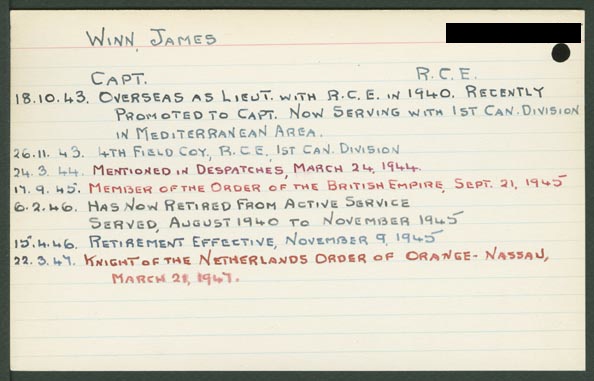 WINN, JAMES
CAPT. R.C.E.
18.10.43. OVERSEAS AS LIEUT. WITH R.C.E. IN 1940. RECENTLY
PROMOTED TO CAPT. NOW SERVING WITH 1ST CAN. DIVISION
IN MEDITERRANEAN AREA.
26.11.43. 4TH FIELD COY., R.C.E., 1ST CAN. DIVISION
24.3.44. MENTIONED IN DESPATCHES, MARCH 24, 1944.
17.9.45. MEMBER OF THE ORDER OF THE BRITISH EMPIRE, SEPT. 21, 1945
6.2.46. HAS NOW RETIRED FROM ACTIVE SERVICE
SERVED, AUGUST 1940 TO NOVEMBER 1945
15.4.46. RETIREMENT EFFECTIVE, NOVEMBER 9, 1945
22.3.47. KNIGHT OF THE NETHERLANDS ORDER OF ORANGE-NASSAU,
MARCH 21, 1947.